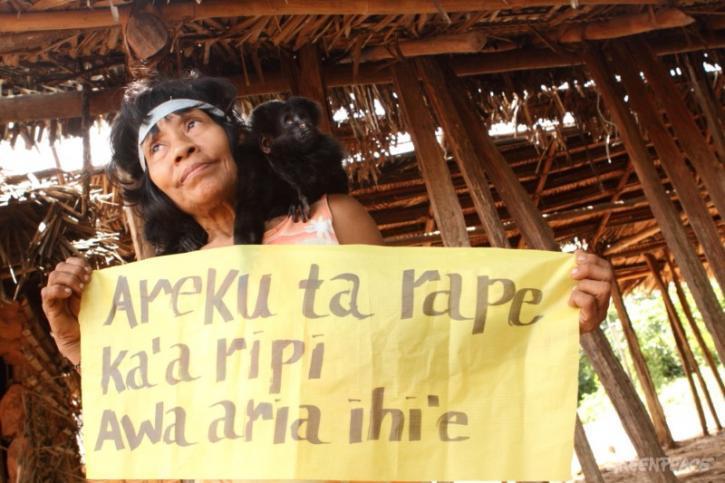 Areku ta rape
ka'a ripi
Awa aria ihi'e
GREENPEACE